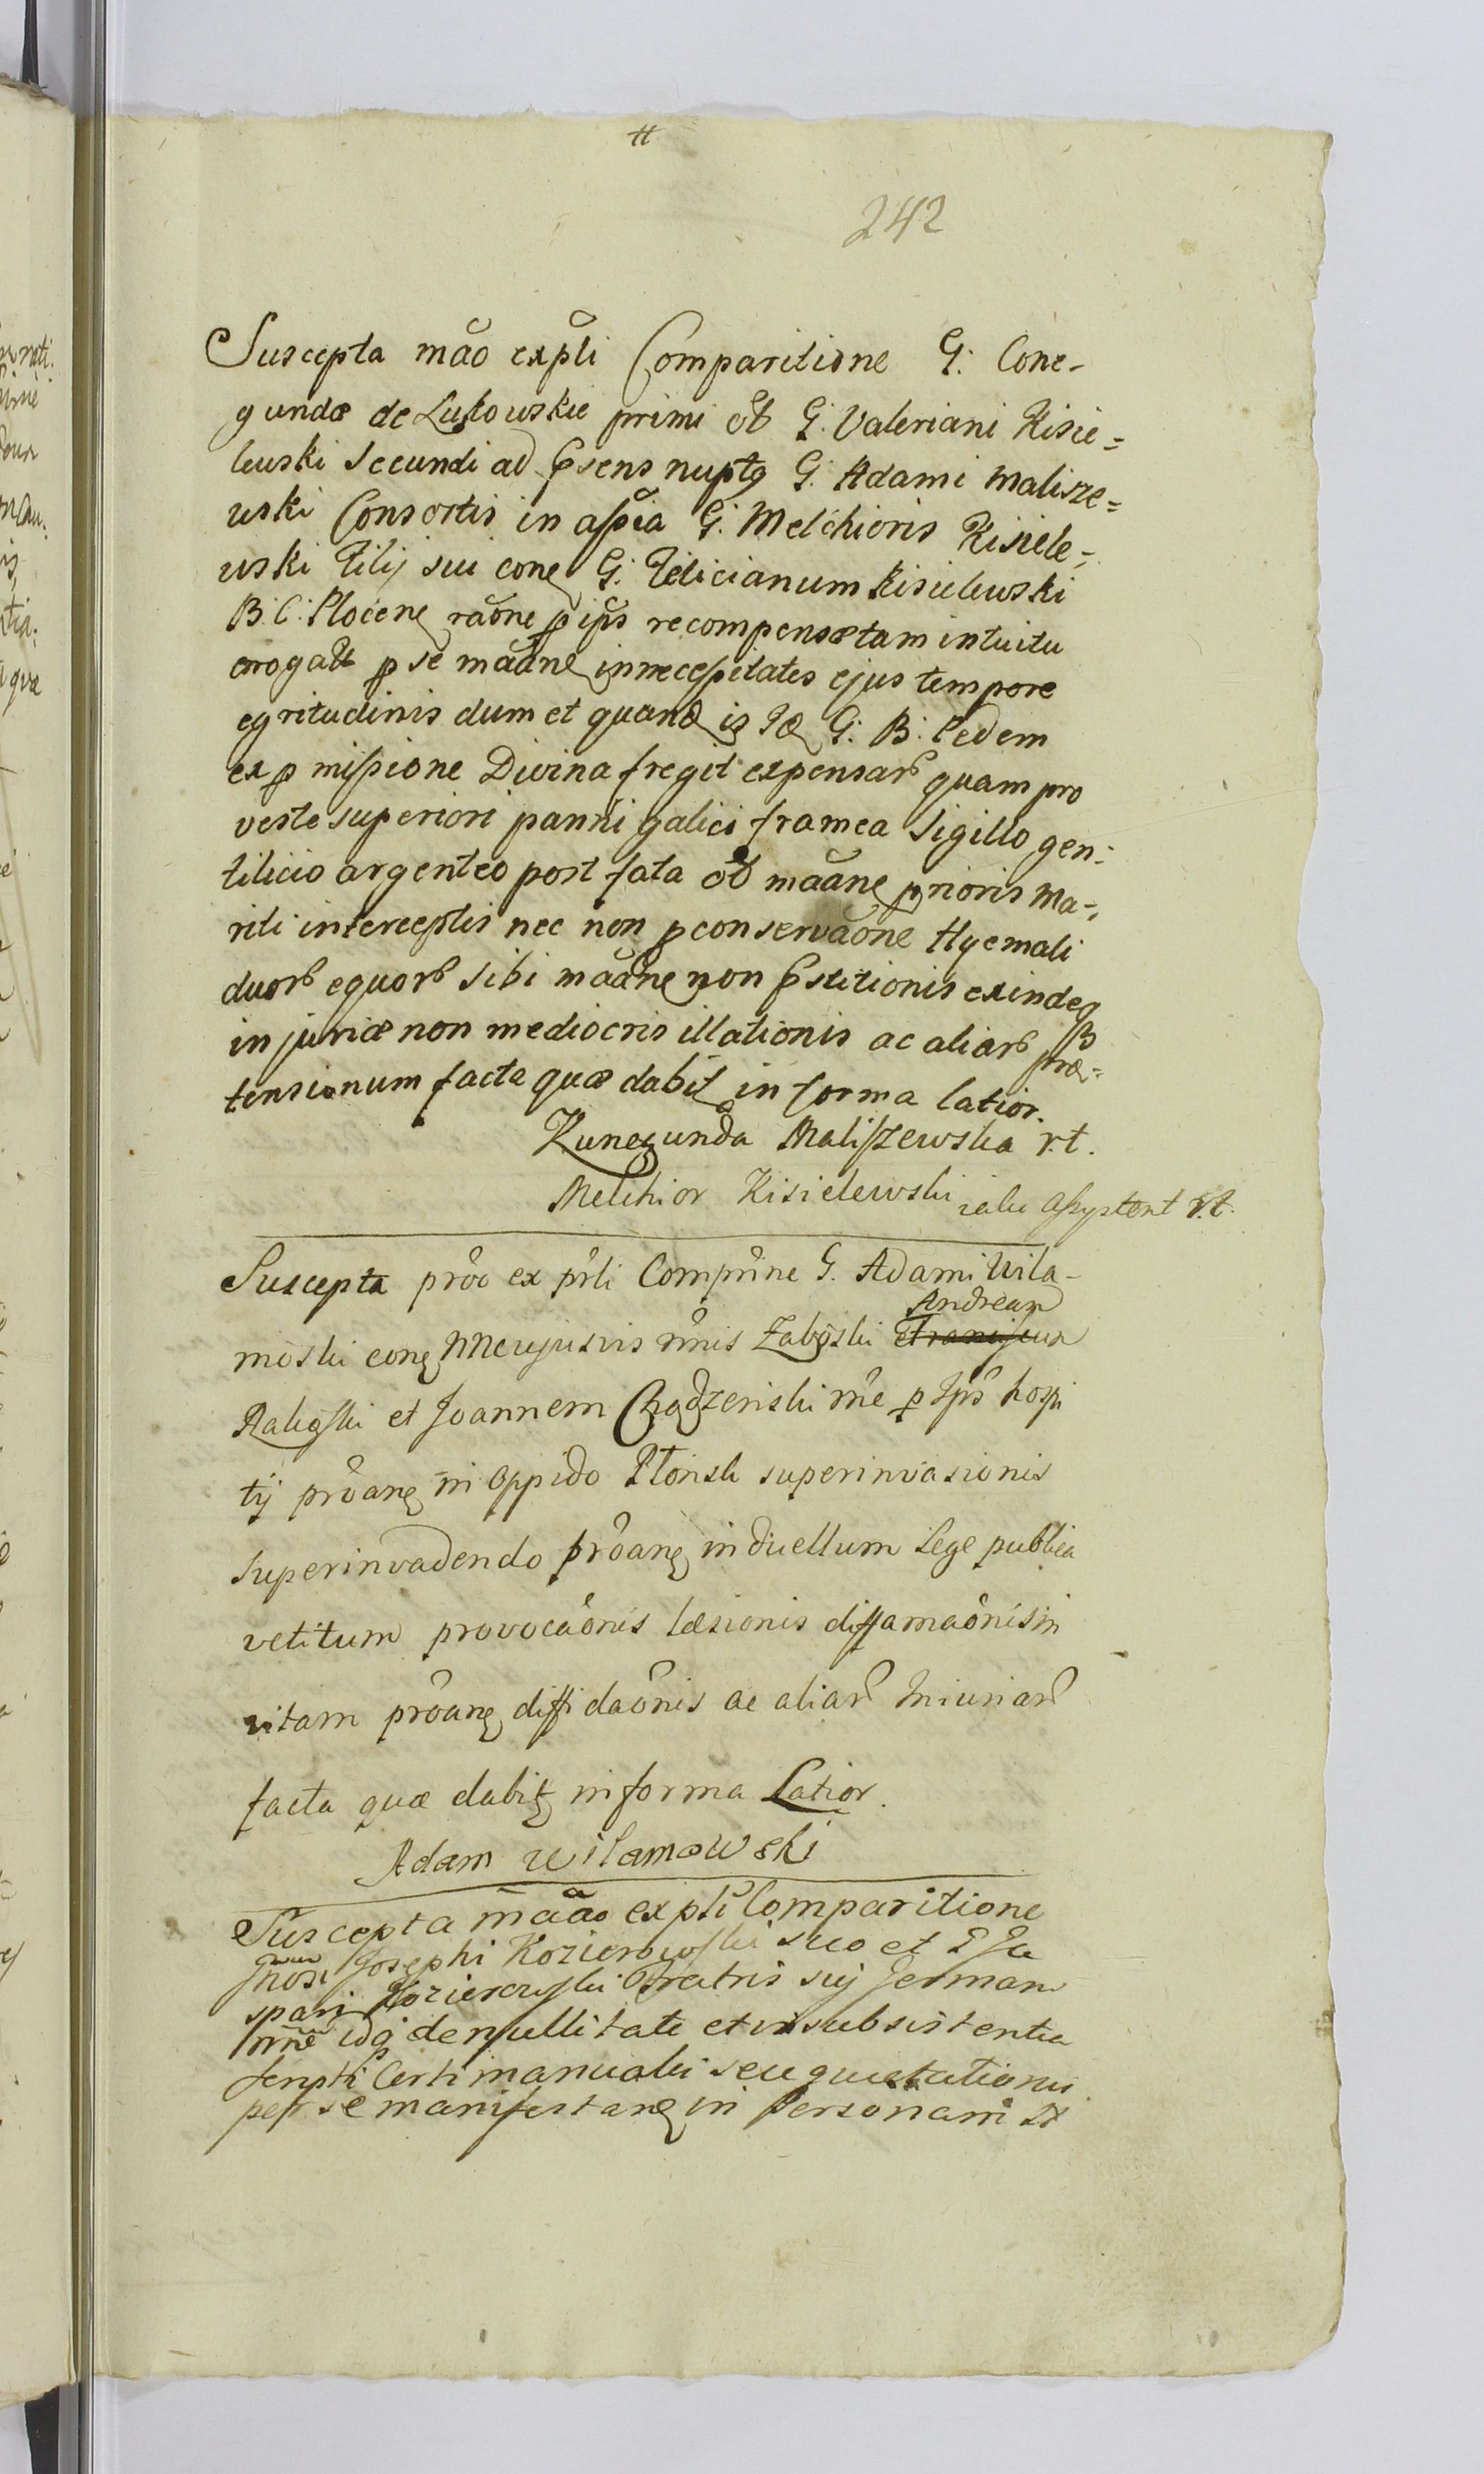 tt
242
Suscepta mão expli Comparitione G: Cone-
gundæ de Lutowskie primi ob G: Valeriani Kisie=
lewski Secundi ad psens nuptą G: Adami Malisze=
wski Consortis in assia G: Melchioris Kisiele-
wski Filij sui cone G: Felicianum Kisielewski
B: C: Plocene raõne p ips recompensætam intuitu
erogatt p se maãne innecessitates ejus tempore
egritudinis dum et quand is G: B: Pedem
ex p missione Divina fregit expensar quam pro
veste superiori panni galici framea Sigillo gen-
tilicio argenteo post fata ob maãne prioris Ma-
riti interceptis nec non p conservaõne Hyemali
duor equor sibi maãne non pstitionis exindeq
injuriæ non mediocris illationis ac aliar præ-
tensionum facta quæ dabit in forma latior.
Kunegunda Maliszewska r.t.
Melchior Kisielewski iako assystent r.t.
Suscepta prõo ex prli Comprine G. Adami Wila-
moski cone Zaboski Andream
Rakoski et Joannem rñe p ips hospi
tij prõane in oppido Płonsk superinvasionis
superinvadendo prõane in duellum Lege publica
vetitum provocaõnis læsionis diffamaõnis in
vitam prõane diffidaõnis ac aliar Iniuriar
facta quæ dabit in forma Latior.
Adam Wilamowski
Suscepta maão ex pli Comparitione
Gnosi Josephi Kozierowski suo et G Ga
spari Kozierowski Fratris sui German
nñe idq de nullitate et insubsistentia
scripti Certi manualis seu quietationis
per se manifestane in Personam